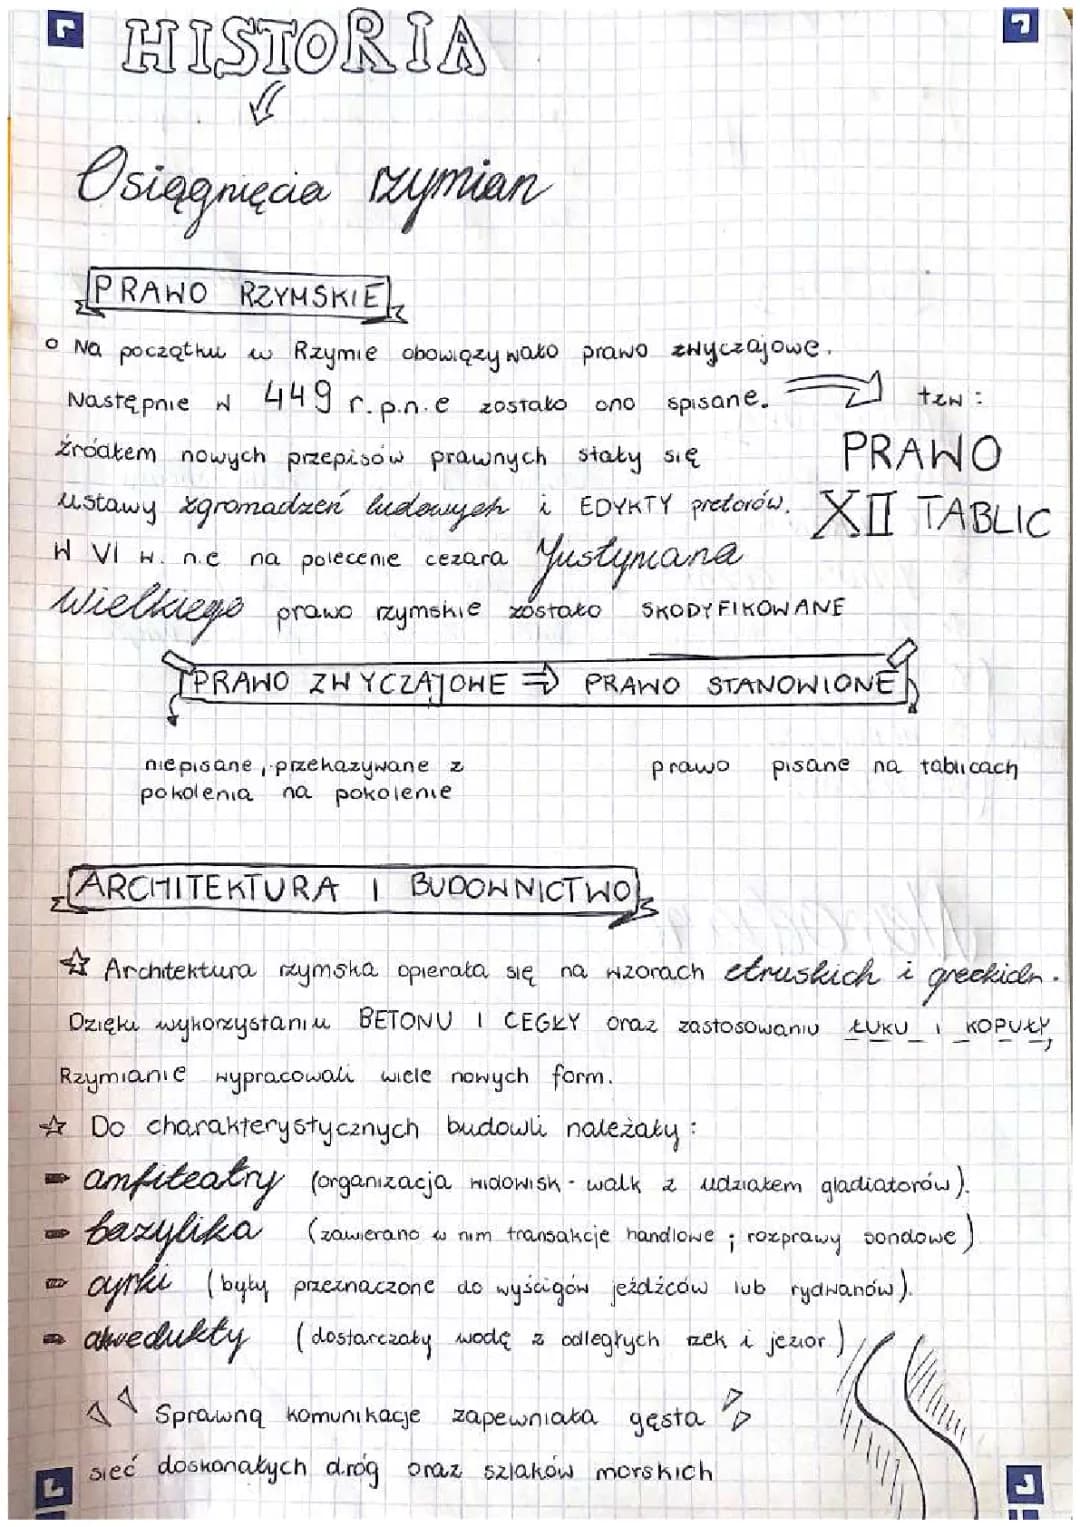 HISTORIA
Osiągnięcia rzymian
PRAWO RZYMSKIE
Na początku w Rzymie obowiązywało prawo zwyczajowe.
Następnie w 449 r.p.n.e zostało ono spisane. tzw:
źródłem nowych przepisów prawnych stały się PRAWO
ustawy zgromadzeń ludowych i EDYKTY pretorów. XII TABLIC
W VI w. n.e na polecenie cezara Justyniana
Wielkiego prawo rzymskie zostało SKODYFIKOWANE
PRAWO ZWYCZAJOWE ⇒ PRAWO STANOWIONE
niepisane, przekazywane z prawo pisane na tablicach
pokolenia na pokolenie
ARCHITEKTURA I BUDOWNICTWO
☆ Architektura rzymska opierała się na wzorach etruskich i greckich.
Dzięki wykorzystaniu BETONU I CEGŁY oraz zastosowaniu ŁUKU i KOPUŁY,
Rzymianie wypracowali wiele nowych form.
☆ Do charakterystycznych budowli należały:
amfiteatry (organizacja widowisk - walk z udziałem gladiatorów).
bazylika (zawierano w nim transakcje handlowe ; rozprawy sondowe)
cyrki (były przeznaczone do wyścigów jeźdźców lub rydwanów).
akwedukty (dostarczały wodę z odległych rzek i jezior)
Sprawną komunikacje zapewniała gęsta
sieć doskonałych dróg oraz szlaków morskich